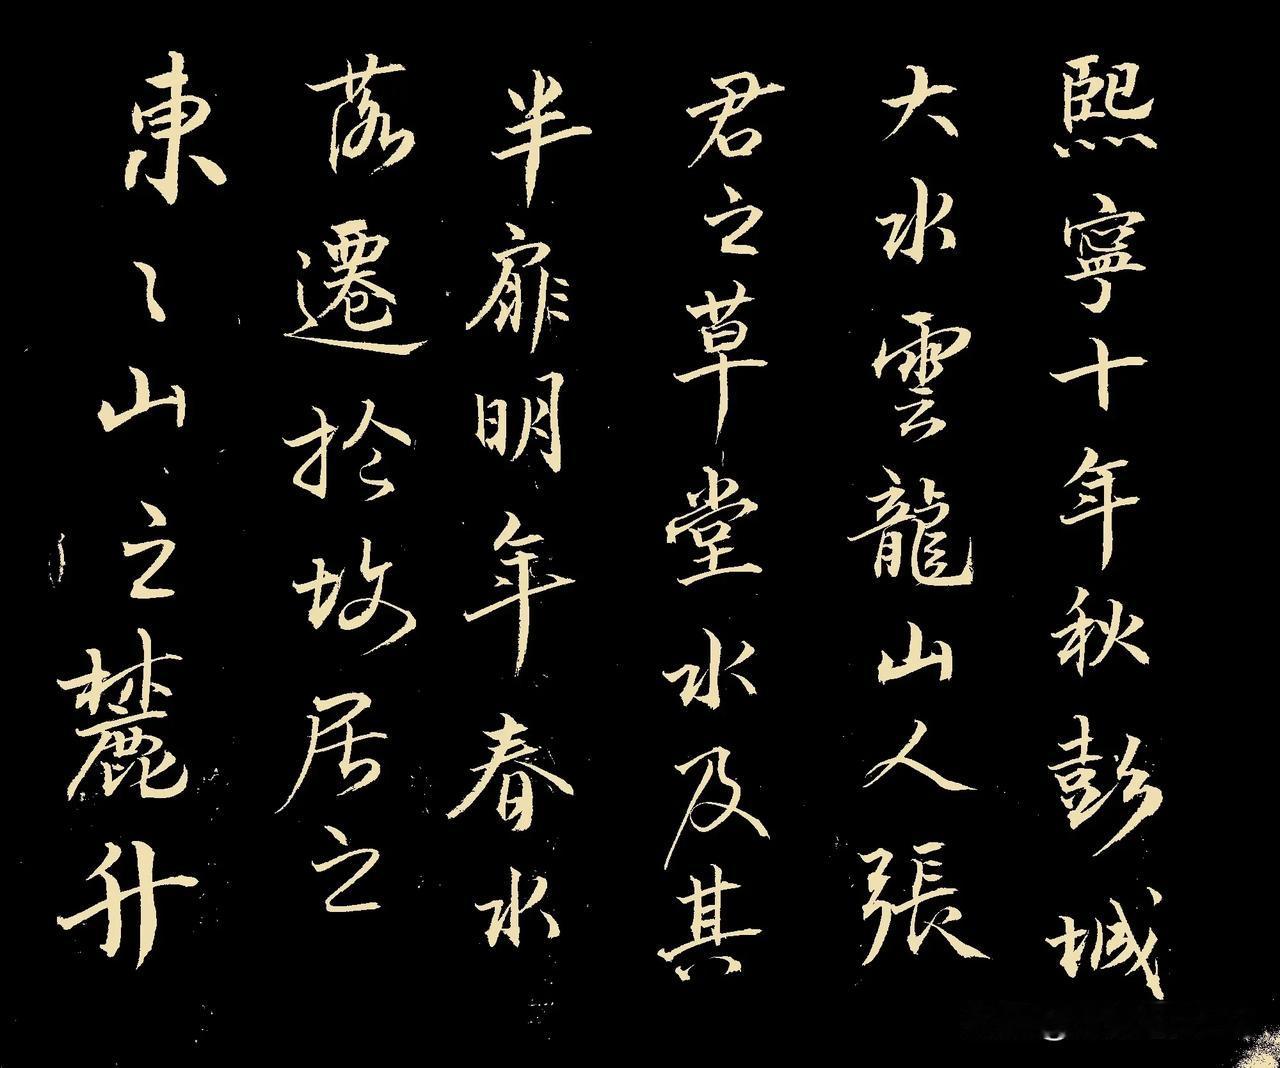 熙寧十年秋彭城
大水雲龍山人張
君之草堂水及其
半扉明年春水
落遷於故居之
東〻山之麓升